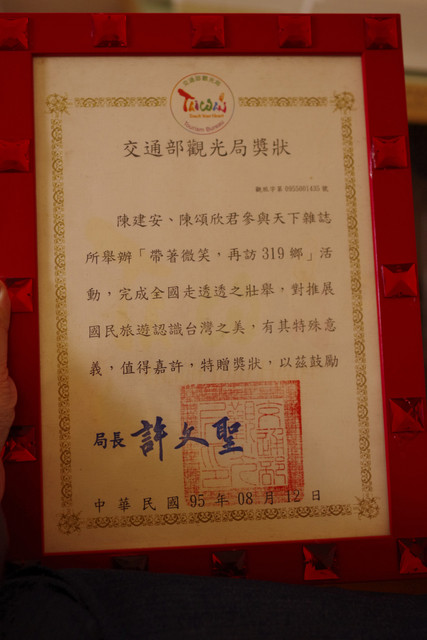 交通部觀光局
Taiwan
Touch Your Heart
Tourism Bureau
交通部觀光局獎狀
觀旅字第0955001435號
陳建安、陳頌欣君參與天下雜誌
所舉辦「帶著微笑，再訪319鄉」活
動，完成全國走透透之壯舉，對推展
國民旅遊認識台灣之美，有其特殊意
義，值得嘉許，特贈獎狀，以茲鼓勵
局長 許文聖
中華民國95年08月12日